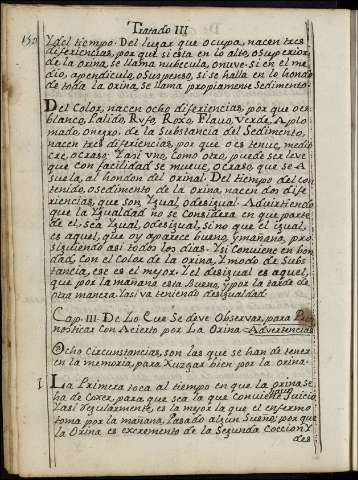 Tratado III
150
Y del tiempo. Del lugar que ocupa, nacen tres
diferiencias, por que si esta en lo alto, o Superior
de la orina, se llama nubecula, o nuve. Si en el me
dio, apendiculo, o Suspenso, si se halla en lo hondo
de toda la orina, se llama propiamente Sedimento.
Del Color, nacen ocho diferiencias, por que o es
blanco, Palido, Rufo, Roxo, Flauo, Verde, Aplo
mado, o negro. de la Substancia del Sedimento,
nacen tres diferiencias, por que o es tenue, medio
cre, o craso; Y asi vno, como otro, puede ser leve
que con facilidad se mueve, o craso, que se a
suela, al hondon del orinal. Del tiempo del con
tenido, o Sedimento de la orina, nacen dos dife
riencias, que son Ygual, o desigual. Advirtiendo
que la Ygualdad no se considera en que parte
de el, sea Ygual, o desigual, si no que el igual,
es aquel, que oy aparece bueno, y mañana, pro
siguiendo asi todos los dias. Y si Conviene en bon
dad, con el Color de la orina, Y modo de Subs
tancia, ese es el mejor. Y el desigual es aquel,
que por la mañana esta Bueno, y por la tarde de
otra manera, la siva teniendo desigualdad
Cap. III De Lo Que Se deve Observar, para Pro
nosticar Con Acierto por La Orina. Advertencias
Ocho Circunstancias, son las que se han de tener
en la memoria, para Xuzgar bien por la orina.
1 La Primera toca al tiempo en que la orina se
ha de Coxer, para que sea la que Conviene Juicio
hazer
Y asi regularmente, es la mejor la que el enfermo
toma por la mañana, Pasado algun Sueño; por que
la Orina es excremento de la Segunda Coccion Y
des